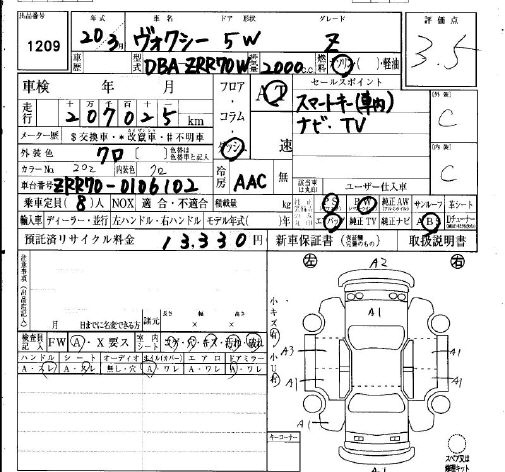 出品番号 年式 車名 ドア 形状 グレード 評価点
1209 20.3月 ヴォクシー 5W Z 3.5
車歴 型式 DBA-ZRR70W 排気量 2000cc 燃料 ガソリン・軽油
車検 年 月 フロア・コラム・ダッシュ AT セールスポイント 外装 C
走行 十万 万 千 百 十 207025km スマートキー(車内)
ナビ・TV
メーター歴 $交換車・*改竄車・#不明車 速 内装 C
外装色 クロ 色替は色替車と記入
カラーNo. 202 内装色 クロ 冷房 AAC 無 ユーザー仕入車
車台番号 ZRR70-0106102
乗車定員(8)人 NOX 適合・不適合 積載量 kg PS PW 純正AW サンルーフ 革シート
輸入車 ディーラー・並行 左ハンドル・右ハンドル モデル年式( )年 エアバッグ 純正TV 純正ナビ ABS
預託済リサイクル料金 13,330円 新車保証書 取扱説明書
左 A2 右
A1
注意事項
小キズ有
A3 A1
月 日までに名変できる方 諸元 長さ 幅 高さ × ×
小U有
検査員記入 FW A・X要ス 室内シート
A1 A1
ハンドル シート オーディオ ホイル(カバー) エアロ ドアミラー
A・スレ A・スレ 無し・穴 A・ワレ A・ワレ A・ワレ
A1
キーコーナー A1 スペア又は修理キット